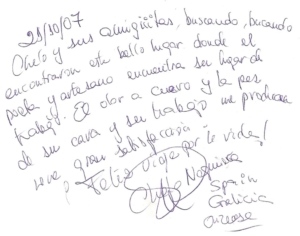 21/10/07
Chelo y sus amiguitas, buscando, bucando
encontraron este bello lugar donde el
poeta y artesano encuentra su lugar de
trabajo. El olor a cuero y la paz
de su cara y su trabajo me produce
una gran satisfacción
¡Feliz viaje por la vida!
Chelo
Spain
Galicia
Ourense